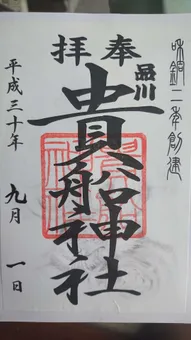 奉拝
和銅二年創建
品川
貴船神社
平成三十年 九月 一日